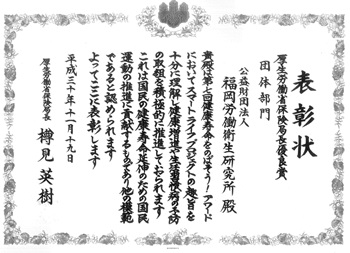 表彰状
厚生労働省保険局長優良賞
団体部門
公益財団法人
福岡労働衛生研究所 殿
貴殿は第七回健康寿命をのばそう！アワード
においてスマートライフプロジェクトの趣旨を
十分に理解し健康増進や生活習慣病の予防
の取組を積極的に推進しておられます
これは国民の健康寿命延伸のための国民
運動の推進に貢献するものであり他の模範
であると認められます
よってここに表彰します
平成三十年十一月十九日
厚生労働省保険局長
樽見 英樹